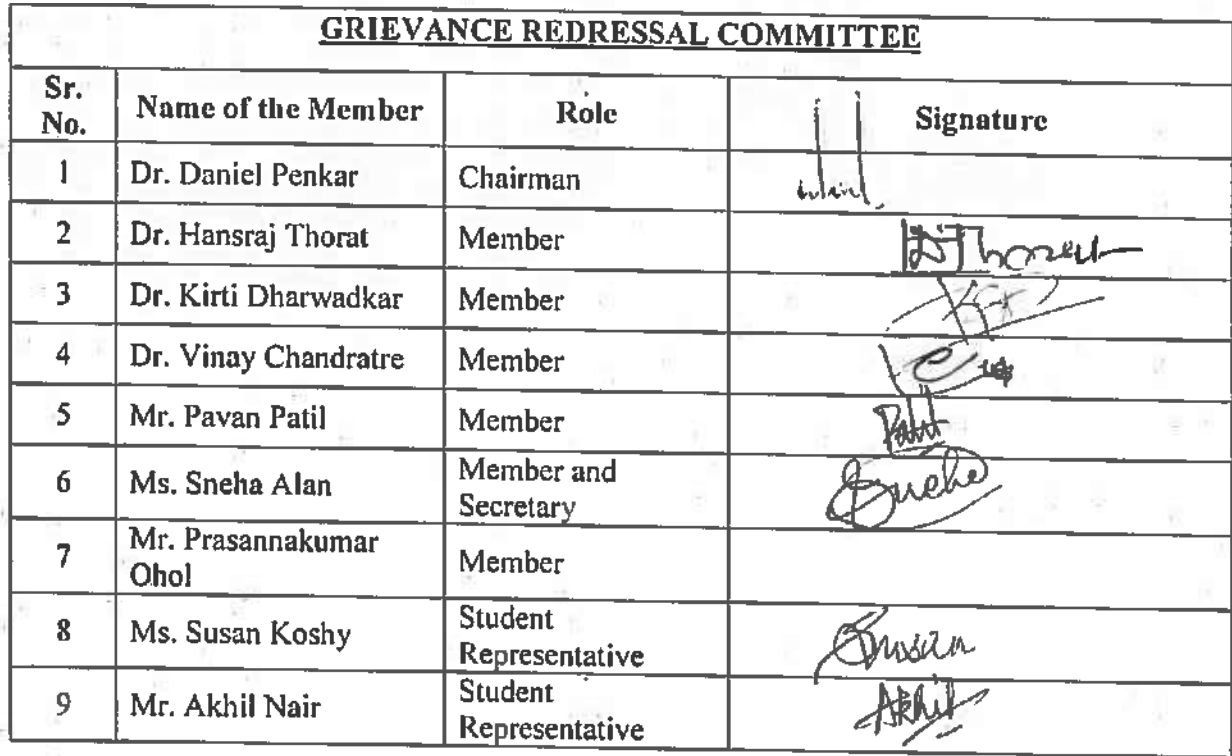 GRIEVANCE REDRESSAL COMMITTEE
Sr. No. Name of the Member Role Signature
1 Dr. Daniel Penkar Chairman
2 Dr. Hansraj Thorat Member Thorat
3 Dr. Kirti Dharwadkar Member
4 Dr. Vinay Chandratre Member
5 Mr. Pavan Patil Member Patil
6 Ms. Sneha Alan Member and Secretary Sneha
7 Mr. Prasannakumar Ohol Member
8 Ms. Susan Koshy Student Representative Susan
9 Mr. Akhil Nair Student Representative Akhil